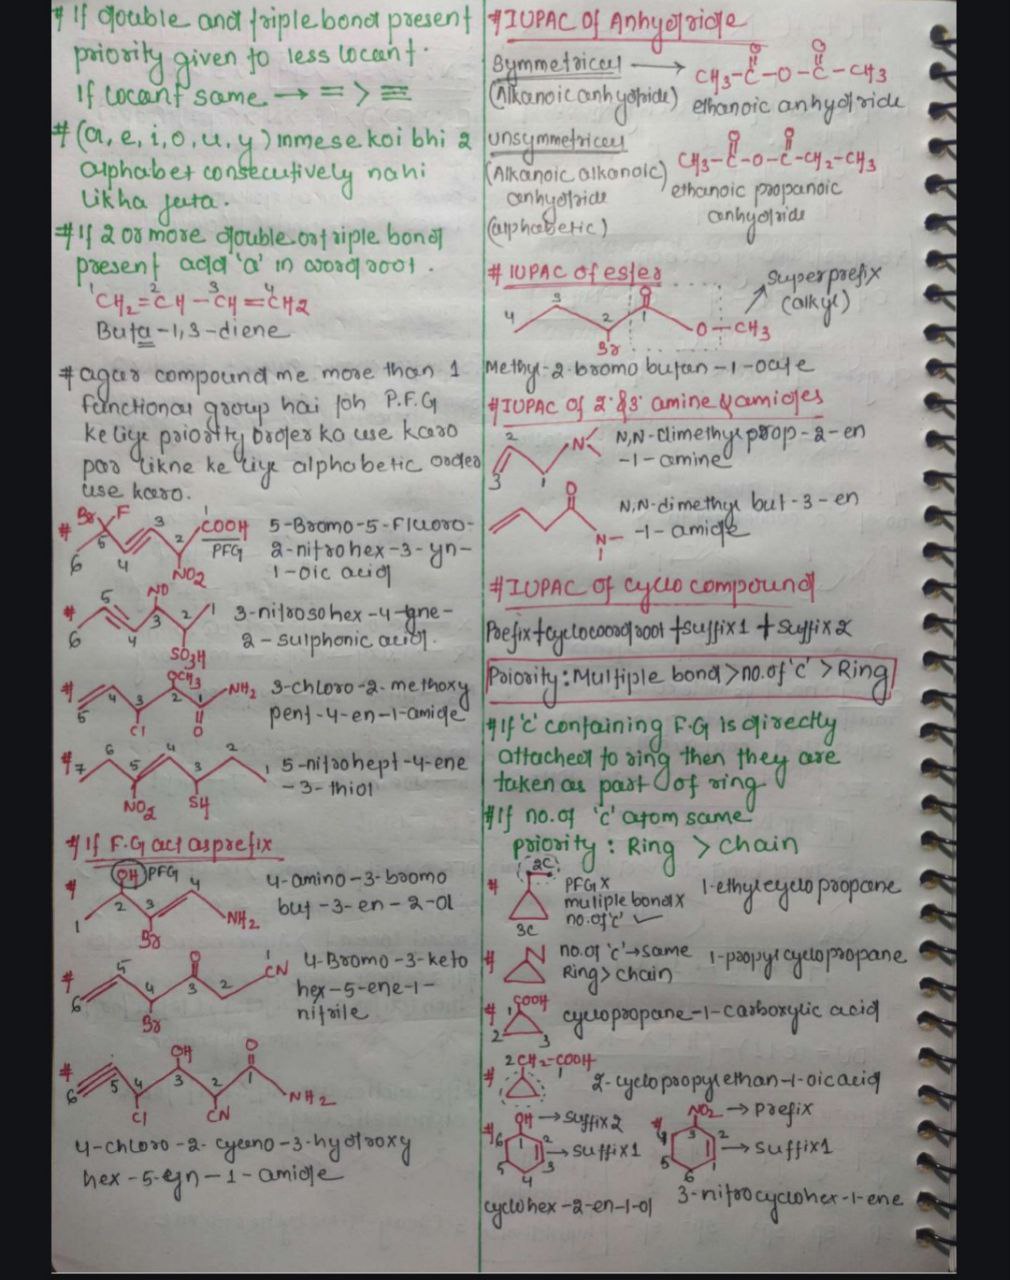 # If double and triple bond present
priority given to less locant.
If locant same → = > ≡
# (a, e, i, o, u, y) inmese koi bhi 2
alphabet consecutively nahi
likha jata.
# If 2 or more double or triple bond
present add 'a' in word root.
1 2 3 4
CH2=CH-CH=CH2
Buta-1,3-diene
# agar compound me more than 1
functional group hai toh P.F.G
ke liye priority order ko use karo
par likne ke liye alphabetic order
use karo.
# Br F 6 5 4 3 2 1 COOH PFG NO2
5-Bromo-5-Fluoro-
2-nitrohex-3-yn-
1-oic acid
# 6 5 4 3 2 1 NO SO3H
3-nitrosohex-4-yne-
2-sulphonic acid.
# 5 4 3 2 1 OCH3 NH2 Cl O
3-chloro-2-methoxy
pent-4-en-1-amide
# 7 6 5 4 3 2 1 NO2 SH
5-nitrohept-4-ene
-3-thiol
# If F.G act as prefix
# OH PFG 1 2 3 4 NH2 Br
4-amino-3-bromo
but-3-en-2-ol
# 6 5 4 3 2 1 O CN Br
4-Bromo-3-keto
hex-5-ene-1-
nitrile
# 6 5 4 3 2 1 OH O NH2 Cl CN
4-chloro-2-cyano-3-hydroxy
hex-5-yn-1-amide
# IUPAC Of Anhydride
Symmetrical → CH3-C-O-C-CH3
O O
(Alkanoic anhydride) ethanoic anhydride
unsymmetrical
O O
CH3-C-O-C-CH2-CH3
(Alkanoic alkanoic)
anhydride
(alphabetic)
ethanoic propanoic
anhydride
# IUPAC of ester
superprefix
(alkyl)
4 3 2 1 O O-CH3
Br
Methyl-2-bromo butan-1-oate
# IUPAC of 2° & 3° amine & amides
2 3 1 N
N,N-dimethyl prop-2-en
-1-amine
O N
N,N-dimethyl but-3-en
-1-amide
# IUPAC of cyclo compound
Prefix+cycloword root+suffix1+suffix2
Priority: Multiple bond>no.of 'c'>Ring
# If 'c' containing F.G is directly
attached to ring then they are
taken as part of ring
# If no.of 'c' atom same
priority: Ring > chain
# 2C 3C
PFG X
muliple bond X
no.of 'c' ✓
1-ethylcyclopropane
# no.of 'c'→same
Ring>chain
1-propylcyclopropane
# COOH 1 2 3
cyclopropane-1-carboxylic acid
# 2 CH2-COOH 1
2-cyclopropylethan-1-oic acid
# OH → suffix2
1 2 3 4 5 6 → suffix1
cyclohex-2-en-1-ol
# NO2 → Prefix
1 2 3 4 5 6 → suffix1
3-nitrocyclohex-1-ene